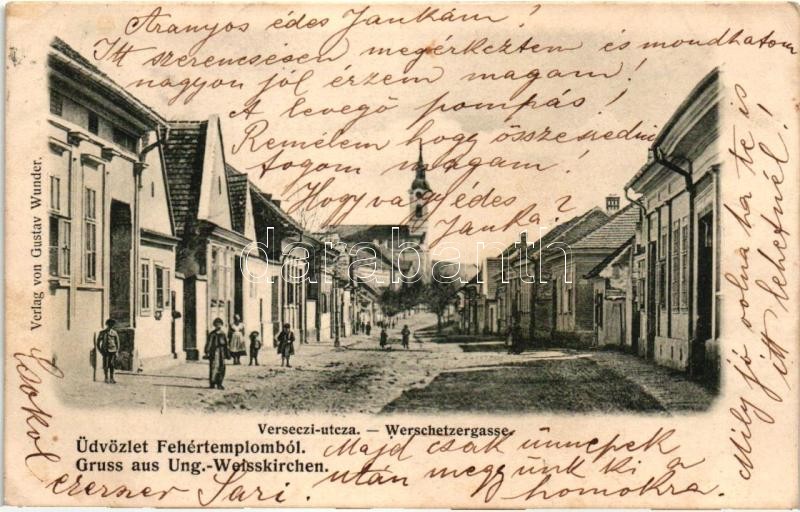 Aranyos édes Jankám!
Itt szerencsésen megérkeztem és mondhatom
nagyon jól érzem magam!
A levegő pompás!
Remélem hogy összeszedni
fogom magam!
Hogy va Édes
Janka?
Mily jó volna ha te is
itt lehetnél!
darabanth
Verlag von Gustav Wunder.
Verseczi-utcza. — Werschetzergasse.
Üdvözlet Fehértemplomból.
Gruss aus Ung.-Weisskirchen.
Majd csak ünnepek
után megyünk ki a
homokra.
Csokol
ezerszer Sari.